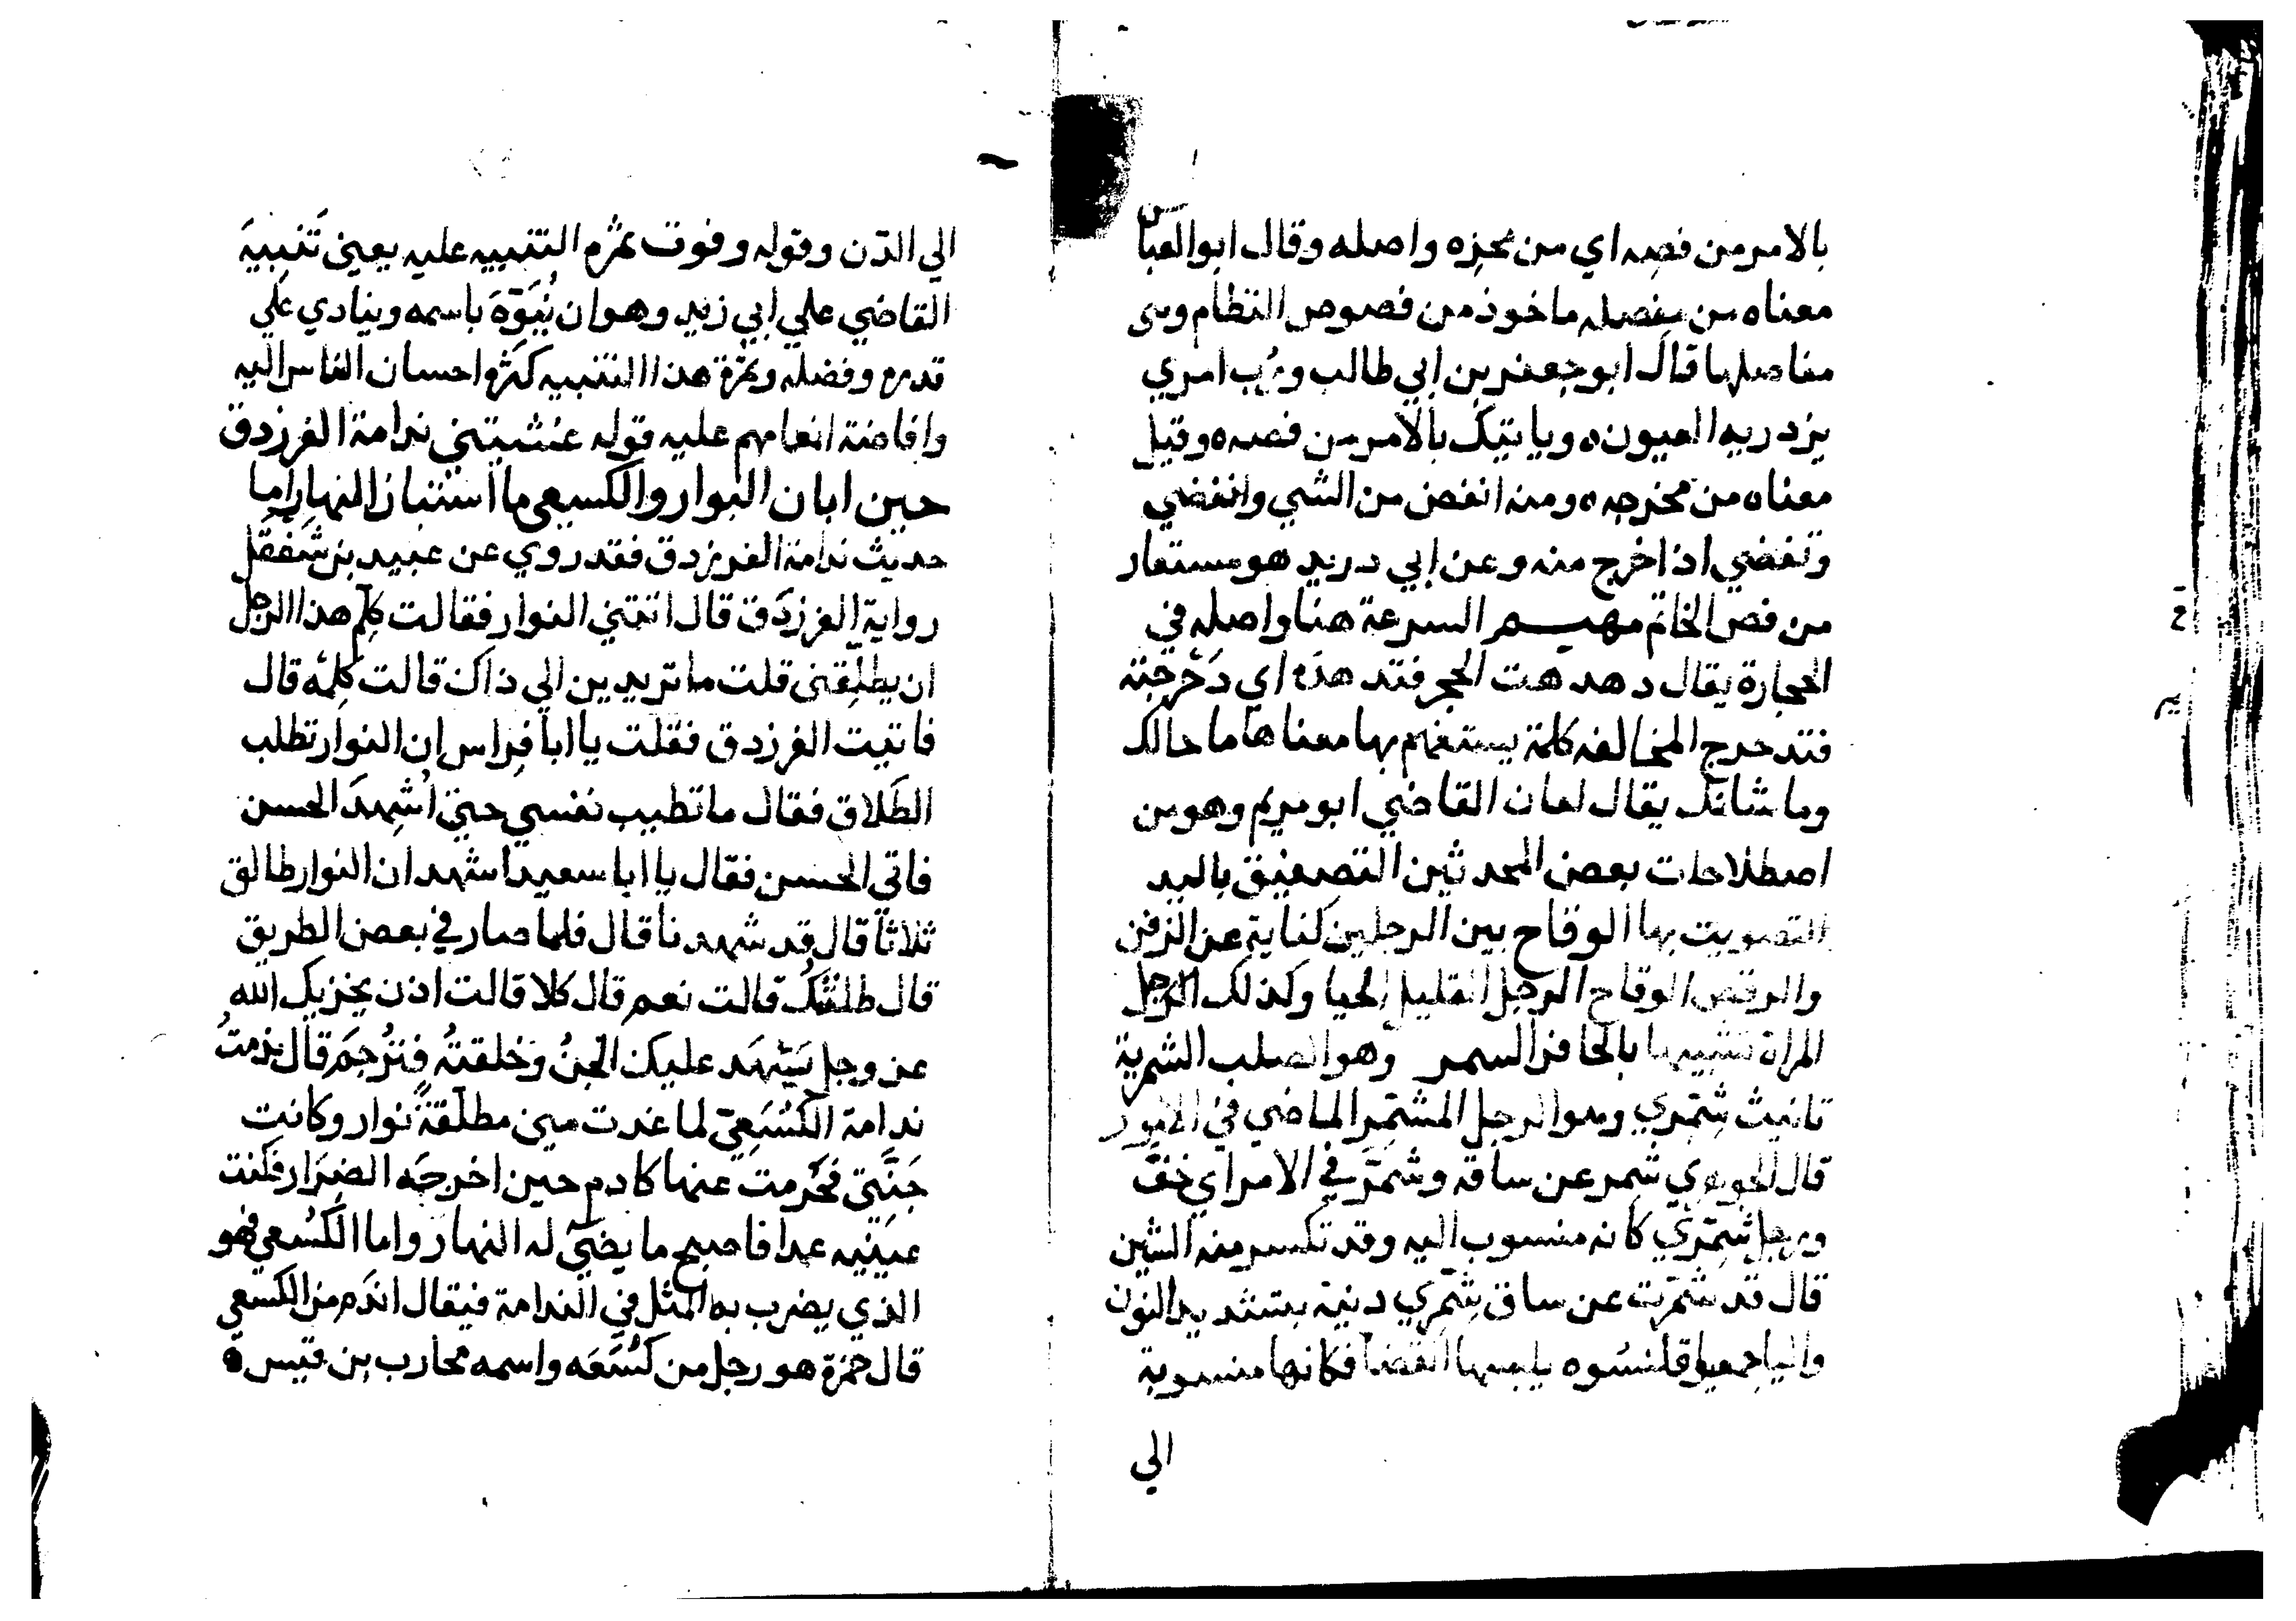 بالامر من فصه اي من محزه واصله وقال ابو العباس
معناه من مفصله ماخوذ من فصوص النظام وهى
مفاصلها قال ابو جعفر بن ابي طالب ورب امري
يزدريه العيون ه وياتيك بالامر من فصه ه وقيل
معناه من مخرجه ه ومنه انفض من الشي وانفضي
وتفضي اذا خرج منه وعن ابي دريد هو مستعار
من فص الخاتم مهيم السرعة هنا واصله في
الحجارة يقال دهدهت الحجر فتدهده اي دَحْرجته
فتدحرج المخالفه كلمة يستفهم بها معناها ما حالك
وما شانك يقال لعان القاضي ابو مريم وهو من
اصطلاحات بعض المحدثين التصفيق باليد
التصويت بها الوقاح بين الرجلين كناية عن الزفن
والرقص الوقاح الرجل القليل الحيا وكذلك الرجل
المراة تشبيها بالحافر السمر وهو الصلب الشمرية
تانيث شمّري وهو الرجل المشمّر الماضي في الامور
قال الجوهري شمر عن ساقه وشمَّر في الامر اي خفّ
ورجل شمّري كانه منسوب اليه وقد تكسر منه الشين
قال قد شمّرت عن ساق شمّري دنية بتشديد النون
واليا جميعا قلنسوه يلبسها القضا فكانها منسوبة
الي
الي الدّن وقوله وفوت ثمرة التنبيه عليه يعني تَنْبيهَ
القاضي علي ابي زيد وهو ان يُنَوّهَ باسمه وينادي علي
قدره وفضله وثمرة هذا التنبيه كثرة احسان الناس اليه
وافاضة انعامهم عليه قوله غشيتني ندامة الفرزدق
حين ابان النوار والكسعي لما استبان النهار اما
حديث ندامة الفرزدق فقد روي عن عبيد بن شَفْقَل
رواية الفرزدق قال اتتني النوار فقالت كلِّم هذا الرجل
ان يطلقنى قلت ما تريدين الي ذاك قالت كلمه قال
فاتيت الفرزدق فقلت يا ابا فراس ان النوار تطلب
الطَلاق فقال ما تطيب نفسي حتي اُشهِدَ الحسن
فاتي الحسن فقال يا ابا سعيد اشهد ان النوار طالق
ثلاثاً قال قد شهدنا قال فلما صار في بعض الطريق
قال طلقتك قالت نعم قال كلا قالت اذن يخزيك الله
عز وجل يَشهَد عليك الجنُ وخلقتهُ فتُرجم قال ندمتُ
ندامة الكُسَعِيّ لما غدت مني مطلّقةً نوار وكانت
جَنَّتي فخرمت عنها كادم حين اخرجَه الضِرَار فكنت
عينيه عمدا فاصبح ما يضيَ له النهار واما الكُسْعي فهو
الذي يضرب به المثل في الندامة فيقال اندَم من الكسعي
قال حمزة هو رجل من كُسَعَه واسمه محارب بن قيس ه